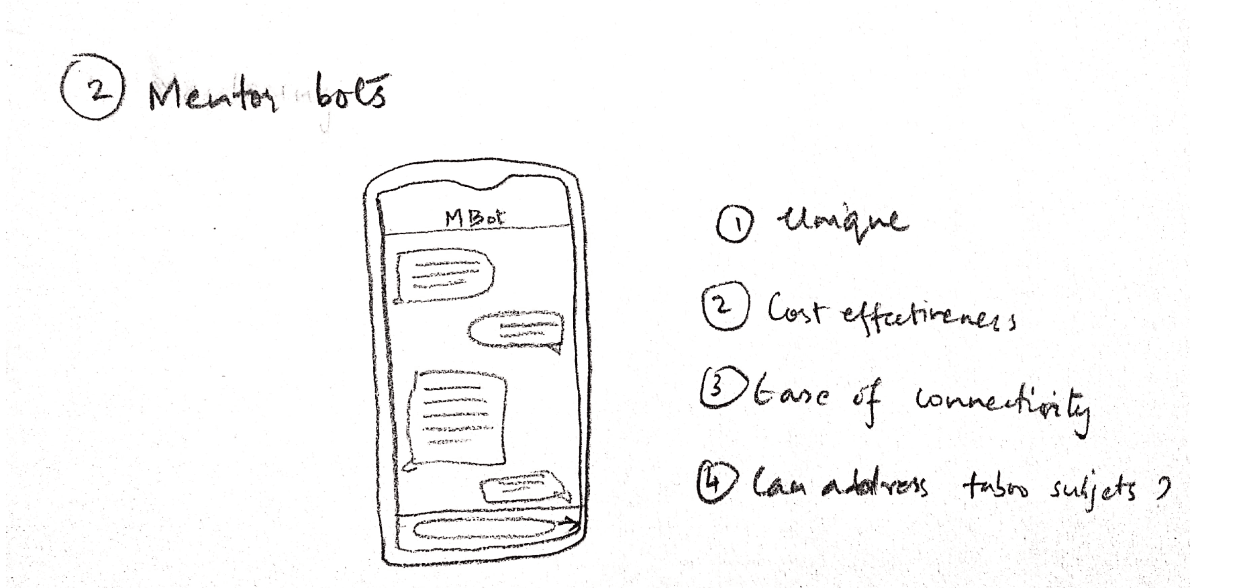 ② Mentor bots
MBot
① Unique
② Cost effectiveness
③ Ease of connectivity
④ Can address taboo subjets ?